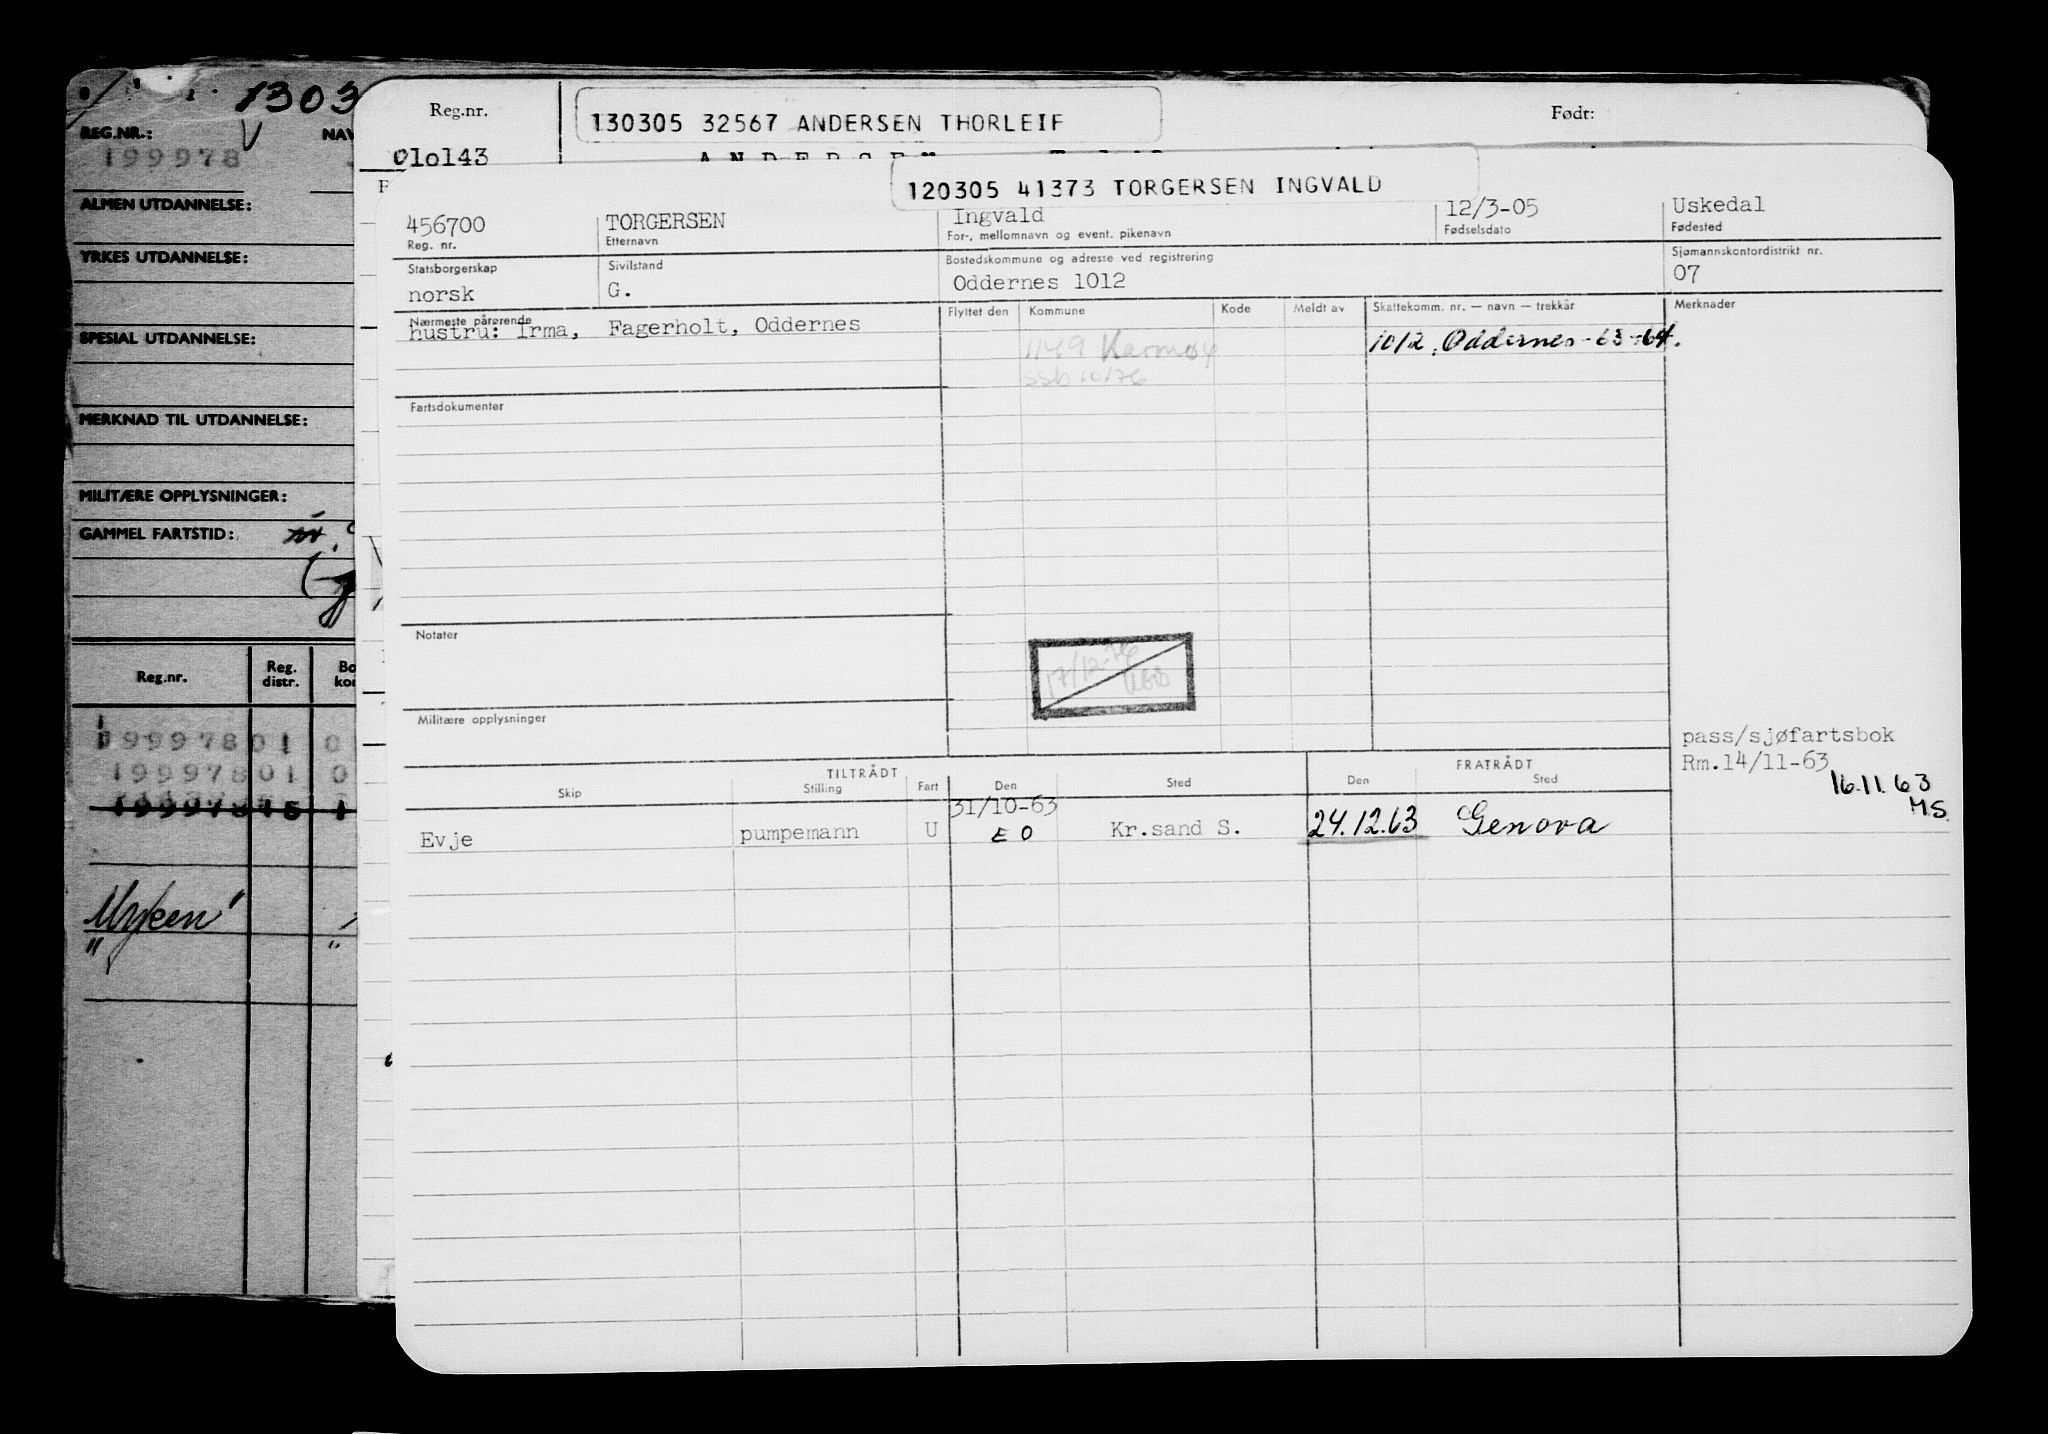 1303
REG.NR.:
199978
ALMEN UTDANNELSE:
YRKES UTDANNELSE:
SPESIAL UTDANNELSE:
MERKNAD TIL UTDANNELSE:
MILITÆRE OPPLYSNINGER:
GAMMEL FARTSTID:
Reg.nr. Reg. distr.
199978 01 0
199978 01 0
199978 15 1
Myken"
" "
Reg.nr. Født:
130305 32567 ANDERSEN THORLEIF
olo143
120305 41373 TORGERSEN INGVALD
456700 TORGERSEN Ingvald 12/3-05 Uskedal
Reg. nr. Etternavn For-, mellomnavn og event. pikenavn Fødselsdato Fødested
Statsborgerskap Sivilstand Bostedskommune og adresse ved registrering Sjømannskontordistrikt nr.
norsk G. Oddernes 1012 07
Nærmeste pårørende Flyttet den Kommune Kode Meldt av Skattekomm. nr. — navn — trekkår Merknader
hustru: Irma, Fagerholt, Oddernes
1149 Karmøy 1012, Oddernes-63-64.
ssb 10/76
Fartsdokumenter
Notater
17/12-76
Militære opplysninger
pass/sjøfartsbok
Rm.14/11-63
16.11.63
MS.
TILTRÅDT FRATRÅDT
Skip Stilling Fart Den Sted Den Sted
31/10-63
Evje pumpemann U E O Kr.sand S. 24.12.63 Genova